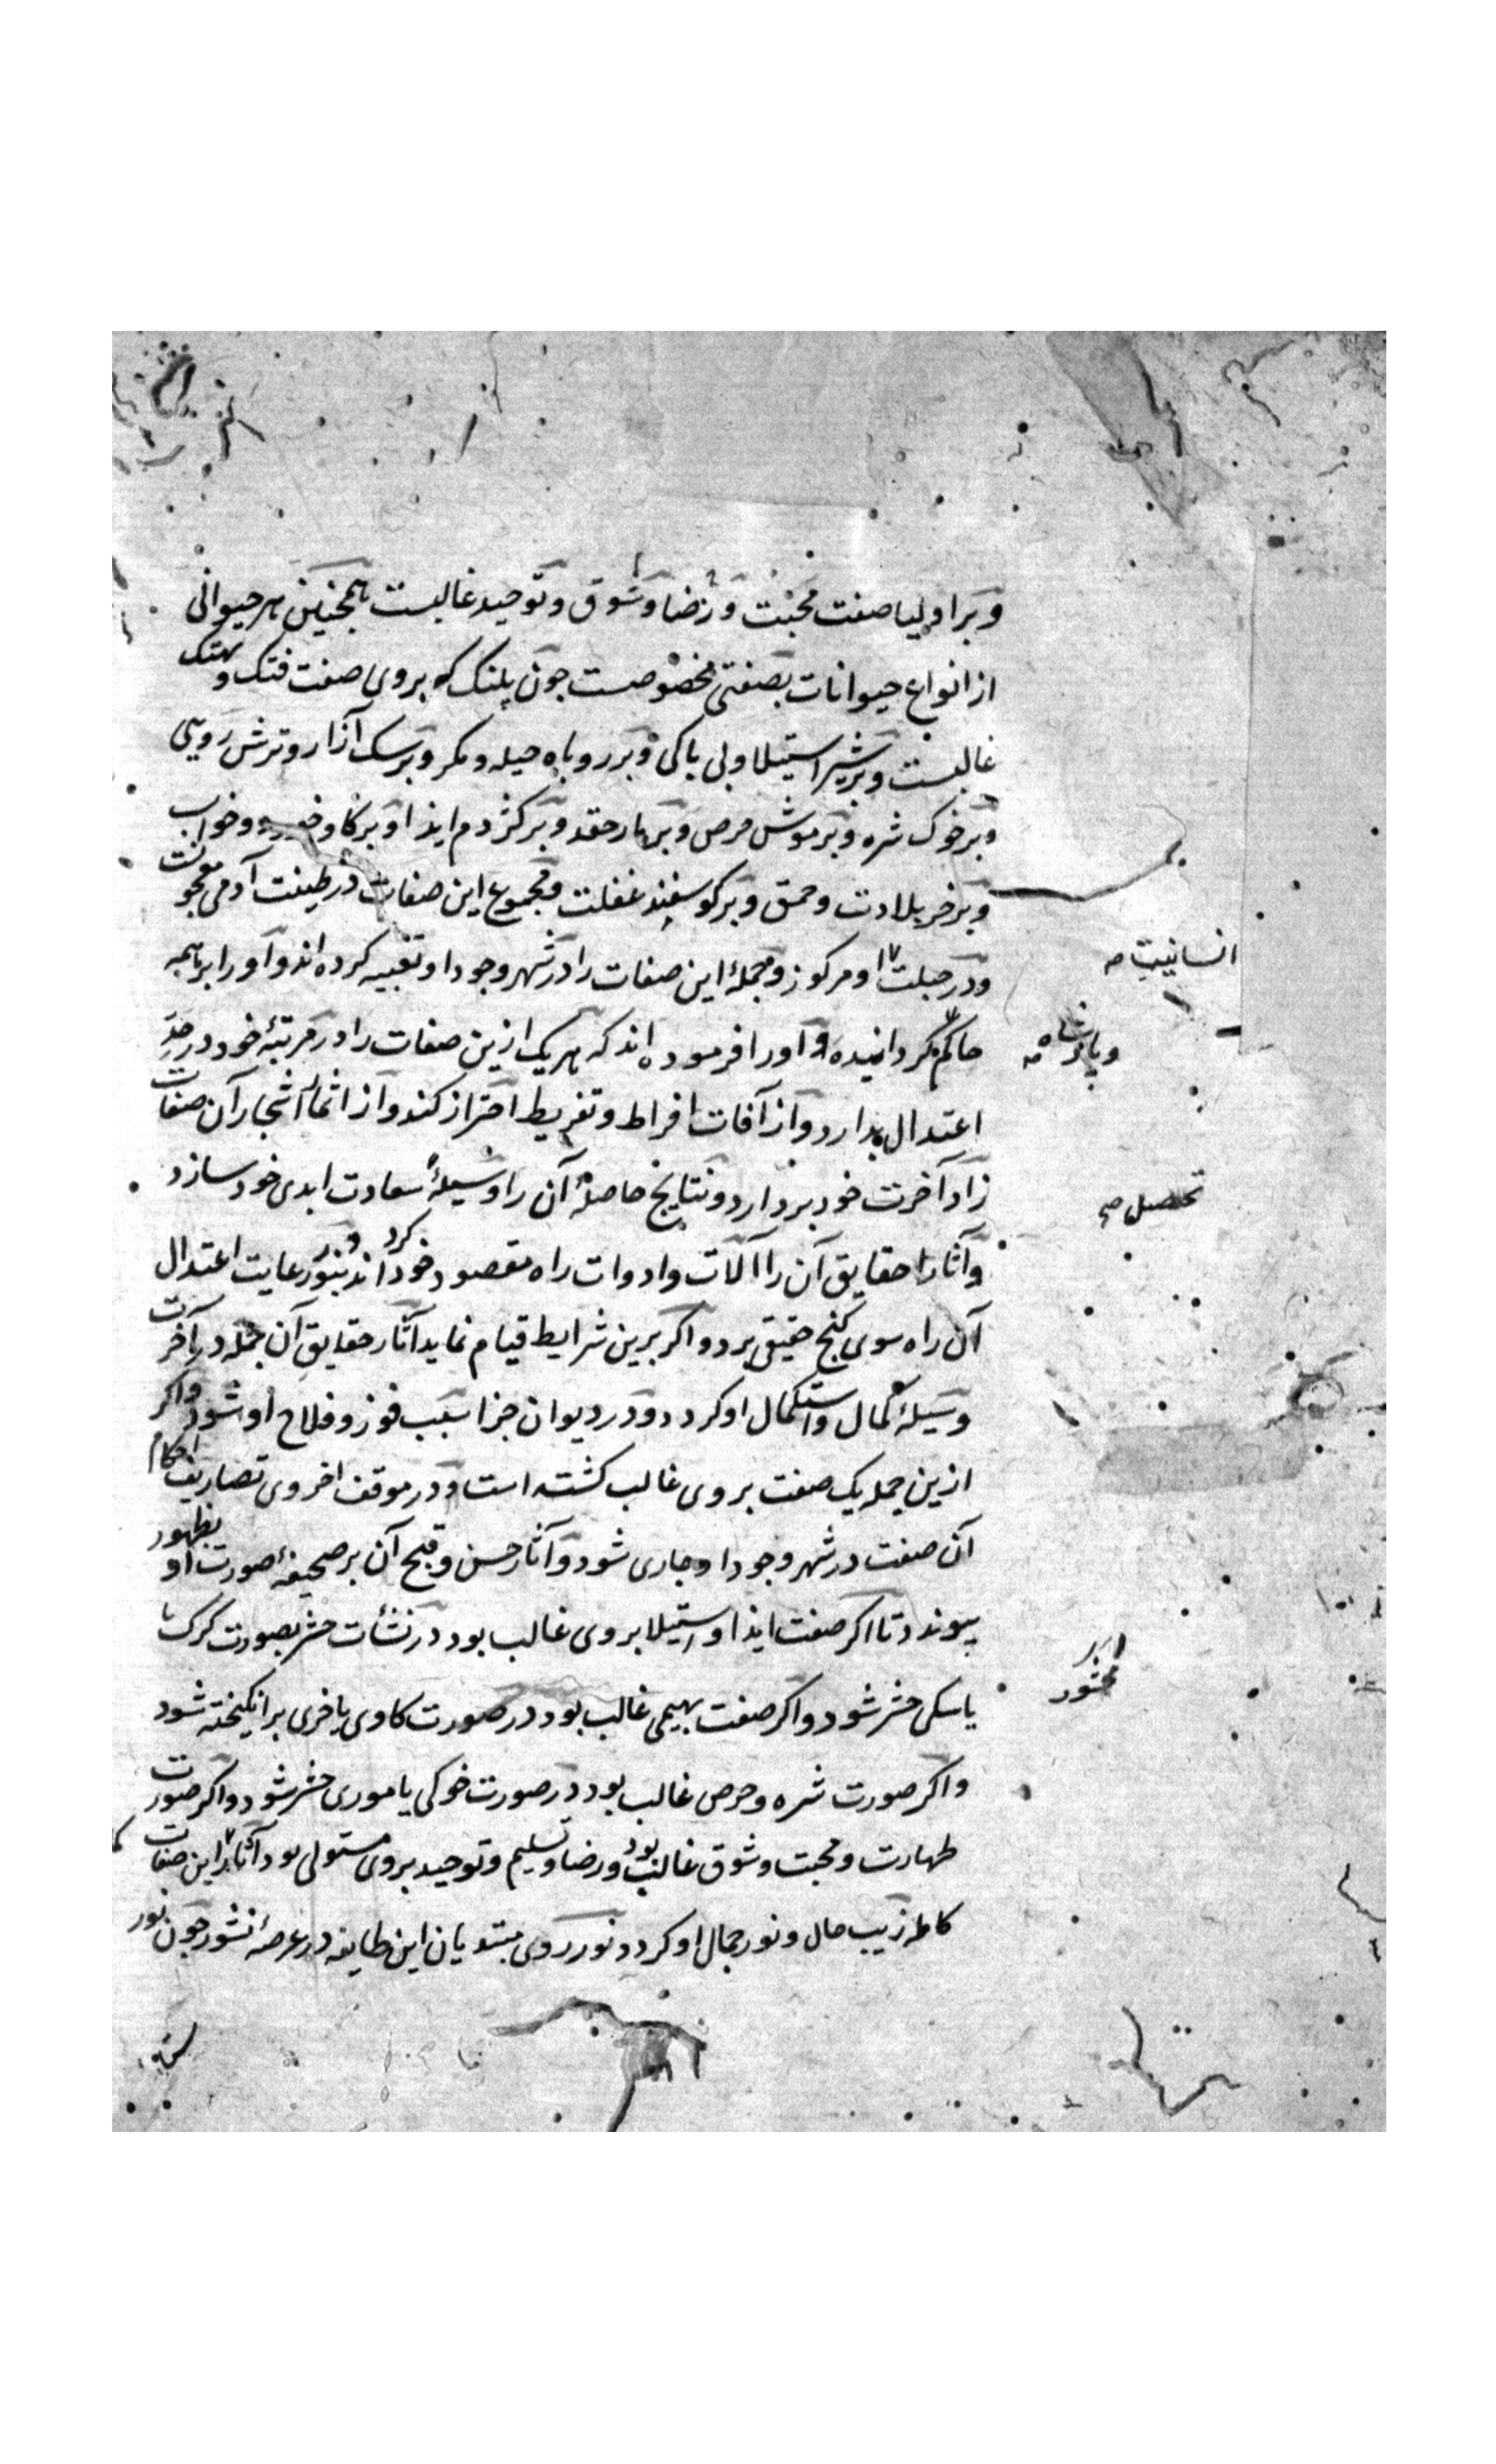 و بر اولیا صفت محبت و رضا و شوق و توحید غالبست همچنین هر حیوانی
از انواع حیوانات بصفتی مخصوصست چون پلنک که بروی صفت فتک و تهتک
غالبست و بر شیر استیلا و بی باکی و بر روباه حیله و مکر و بر سک آزار و ترش رویی
و بر خوک شره و بر موش حرص و بر مار حقد و بر کژدم ایذا و بر کاو خور و خواب
و بر خر بلادت و حمق و بر کوسفند غفلت و مجموع این صفات در طینت آدمی معجونست
و در جبلت او مرکوز و جملهٔ این صفات را در شهر وجود او تعبیه کرده اند و او را بر همه
انسانیت صح
حاکم کردانیده و او را فرموده اند که هر یک ازین صفات را در مرتبهٔ خود در حد
و پادشاه صح
اعتدال بدارد و از آفات افراط و تفریط احتراز کند و از اثمار اشجار آن صفات
زاد آخرت خود بردارد و نتایج حاصلهٔ آن را وسیلهٔ سعادت ابدی خود سازد
تحصیل صح
و آثار حقایق آن را آلات و ادوات راه مقصود خود کرداند و بنور رعایت اعتدال
آن راه سوی کنج حقیقی برد و اکر برین شرایط قیام نماید آثار حقایق آن جمله در آخرت
وسیلهٔ کمال و استکمال او کردد و در دیوان جزا سبب فوز و فلاح او شود و اکر
ازین جمله یک صفت بروی غالب کشته است و در موقف اخروی تصاریف احکام
آن صفت در شهر وجود او جاری شود و آثار حسن و قبح آن بر صحیفهٔ صورت او بظهور
پیوندد تا اکر صفت ایذا و استیلا بروی غالب بود در نشأت حشر بصورت کرک یا
محشور
یا سکی حشر شود و اکر صفت بهیمی غالب بود در صورت کاوی یا خری برانکیخته شود
و اکر صورت شره و حرص غالب بود در صورت خوکی یا موری حشر شود و اکر صورت
طهارت و محبت و شوق غالب بود و رضا و تسلیم و توحید بروی مستولی بود آثار این صفات
کامله زیب حال و نور جمال او کردد و نور روی مبتدیان این طایفه در عرصهٔ نشور چون نور